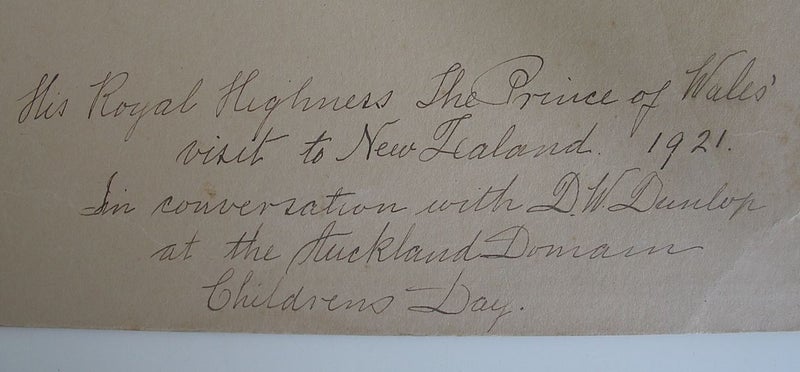 His Royal Highness The Prince of Wales'
visit to New Zealand. 1921.
In conversation with D.W. Dunlop
at the Auckland Domain
Childrens Day.